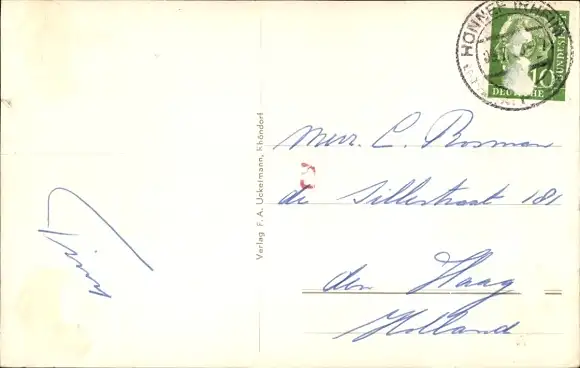 HONNEF (RHEIN)
10
DEUTSCHE
BUNDESPOST
Mevr. C. Bosman
de Sillestraat 181
den Haag
Holland
Verlag F. A. Uckermann, Rhöndorf